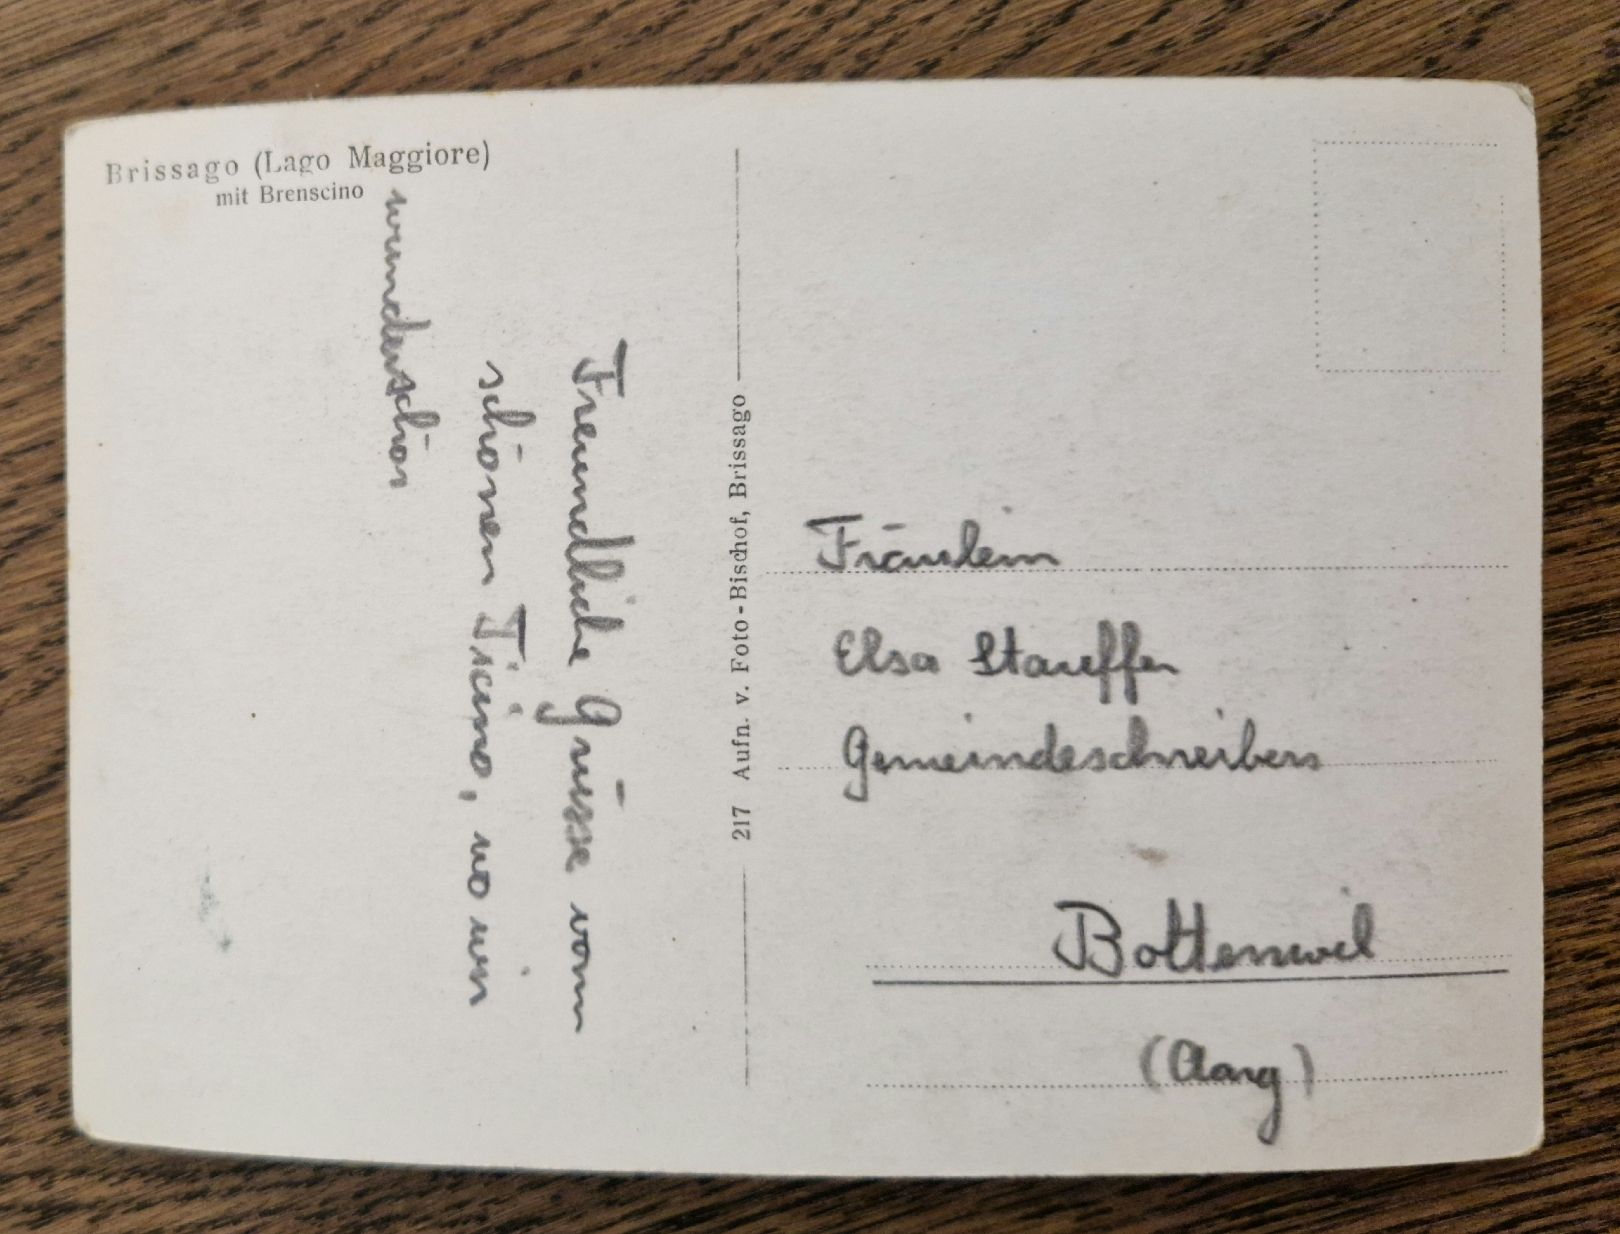 Brissago (Lago Maggiore)
mit Brenscino
Freundliche Grüsse vom
schönen Ticino, wo wir
wunderschön
217 Aufn. v. Foto-Bischof, Brissago
Fräulein
Elsa Stauffer
Gemeindeschreibers
Bottenwil
(Aarg)